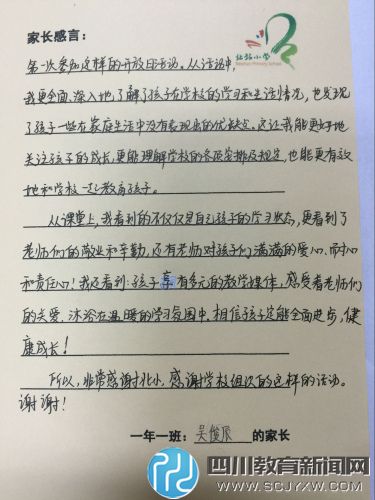 家长感言：
北站小学
第一次参加这样的开放日活动。从活动中，
我更全面、深入地了解了孩子在学校的学习和生活情况，也发现
了孩子一些在家庭生活中没有表现出的优缺点。这让我能更好地
关注孩子的成长，更能理解学校的各项安排及规定，也能更有效
地和学校一起教育孩子。
从课堂上，我看到的不仅仅是自己孩子的学习状态，更看到了
老师们的敬业和辛勤，还有老师对孩子们满满的爱心、耐心
和责任心！我还看到：孩子享有多元的教学媒体，感受着老师们
的关爱，沐浴在温暖的学习氛围中，相信孩子定能全面进步，健
康成长！
所以，非常感谢北小，感谢学校组织的这样的活动。
谢谢！
一年一班：吴俊辰 的家长
四川教育新闻网
WWW.SCJYXW.COM